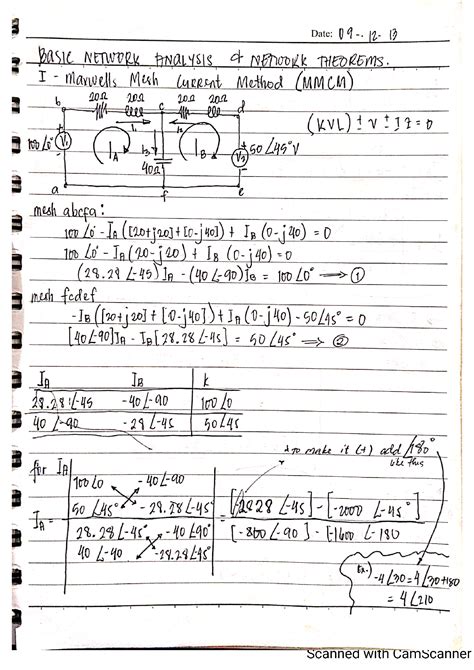 Date: 09-12-13
BASIC NETWORK ANALYSIS & NETWORK THEOREMS.
I - Maxwells Mesh Current Method (MMCM)
20Ω 20Ω 20Ω 20Ω
b c d
I₁ I₂
(KVL) ± V ± IZ = 0
100∠0° V₁ I_A I₃ I_B V₂ 50∠45° V
40Ω
a f e
mesh abcfa:
100∠0° - I_A([20+j20]+[0-j40]) + I_B(0-j40) = 0
100∠0° - I_A(20-j20) + I_B(0-j40) = 0
(28.28∠-45)I_A - (40∠-90)I_B = 100∠0° → ①
mesh fcdef
-I_B([20+j20]+[0-j40]) + I_A(0-j40) - 50∠45° = 0
[40∠-90]I_A - I_B[28.28∠-45] = 50∠45° ⇒ ②
I_A I_B k
28.28∠-45 -40∠-90 100∠0
40∠-90 -28∠-45 50∠45
* to make it (+) add ∠180°
like this
for I_A
100∠0 -40∠-90
50∠45° -28.28∠-45°
I_A = = [-2828∠-45] - [-2000∠-45°]
28.28∠-45° -40∠90°
[-800∠-90] - [-1600∠-180
40∠-90 -28.28∠45°
Ex.) -4∠30 = 4∠30+180
= 4∠210
Scanned with CamScanner